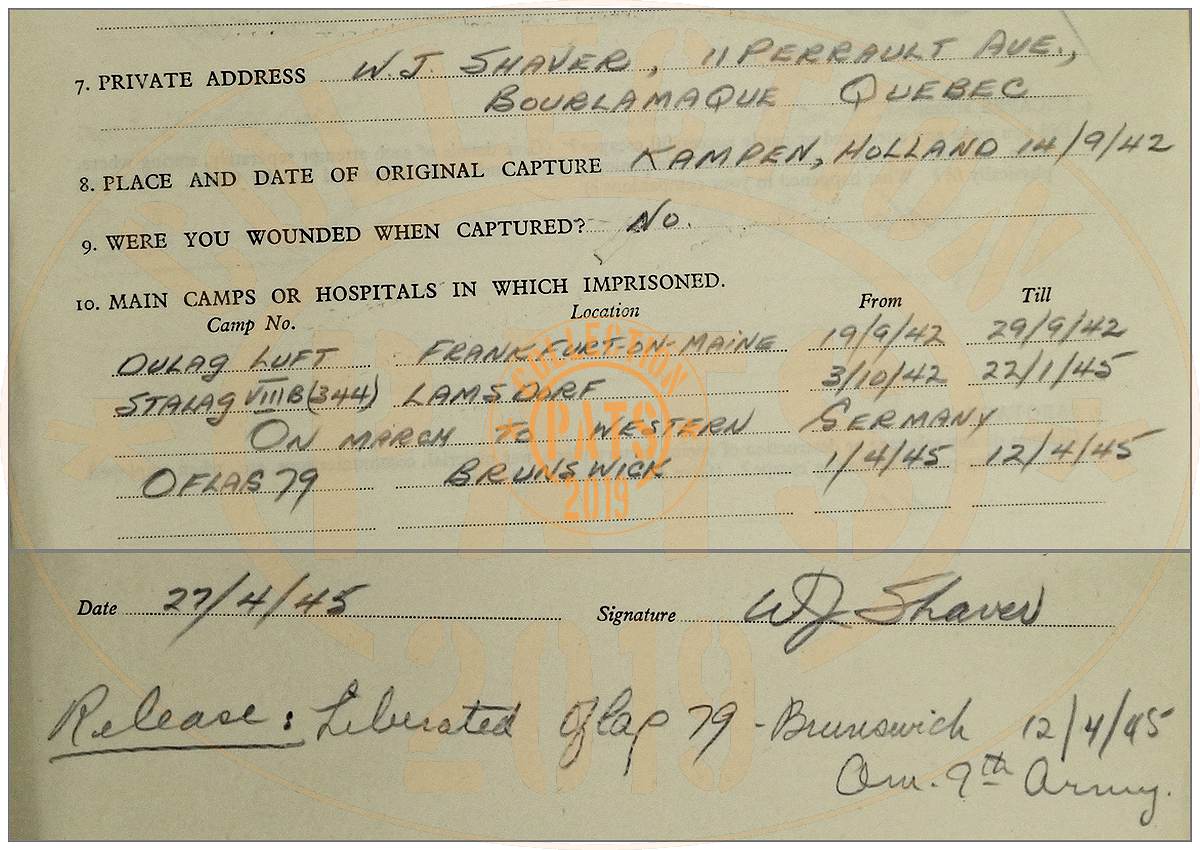 7. PRIVATE ADDRESS W.J. SHAVER, 11 PERRAULT AVE.,
BOURLAMAQUE QUEBEC
8. PLACE AND DATE OF ORIGINAL CAPTURE KAMPEN, HOLLAND 14/9/42
9. WERE YOU WOUNDED WHEN CAPTURED? NO.
10. MAIN CAMPS OR HOSPITALS IN WHICH IMPRISONED.
Camp No. Location From Till
DULAG LUFT FRANKFURT-ON-MAINE 19/9/42 29/9/42
STALAG VIIIB (344) LAMSDORF 3/10/42 22/1/45
ON MARCH TO WESTERN GERMANY
OFLAG 79 BRUNSWICK 1/4/45 12/4/45
COLLECTION
PATS
2019
Date 27/4/45 Signature WJ Shaver
Release: Liberated Oflag 79 - Brunswick 12/4/45
Am. 9th Army.